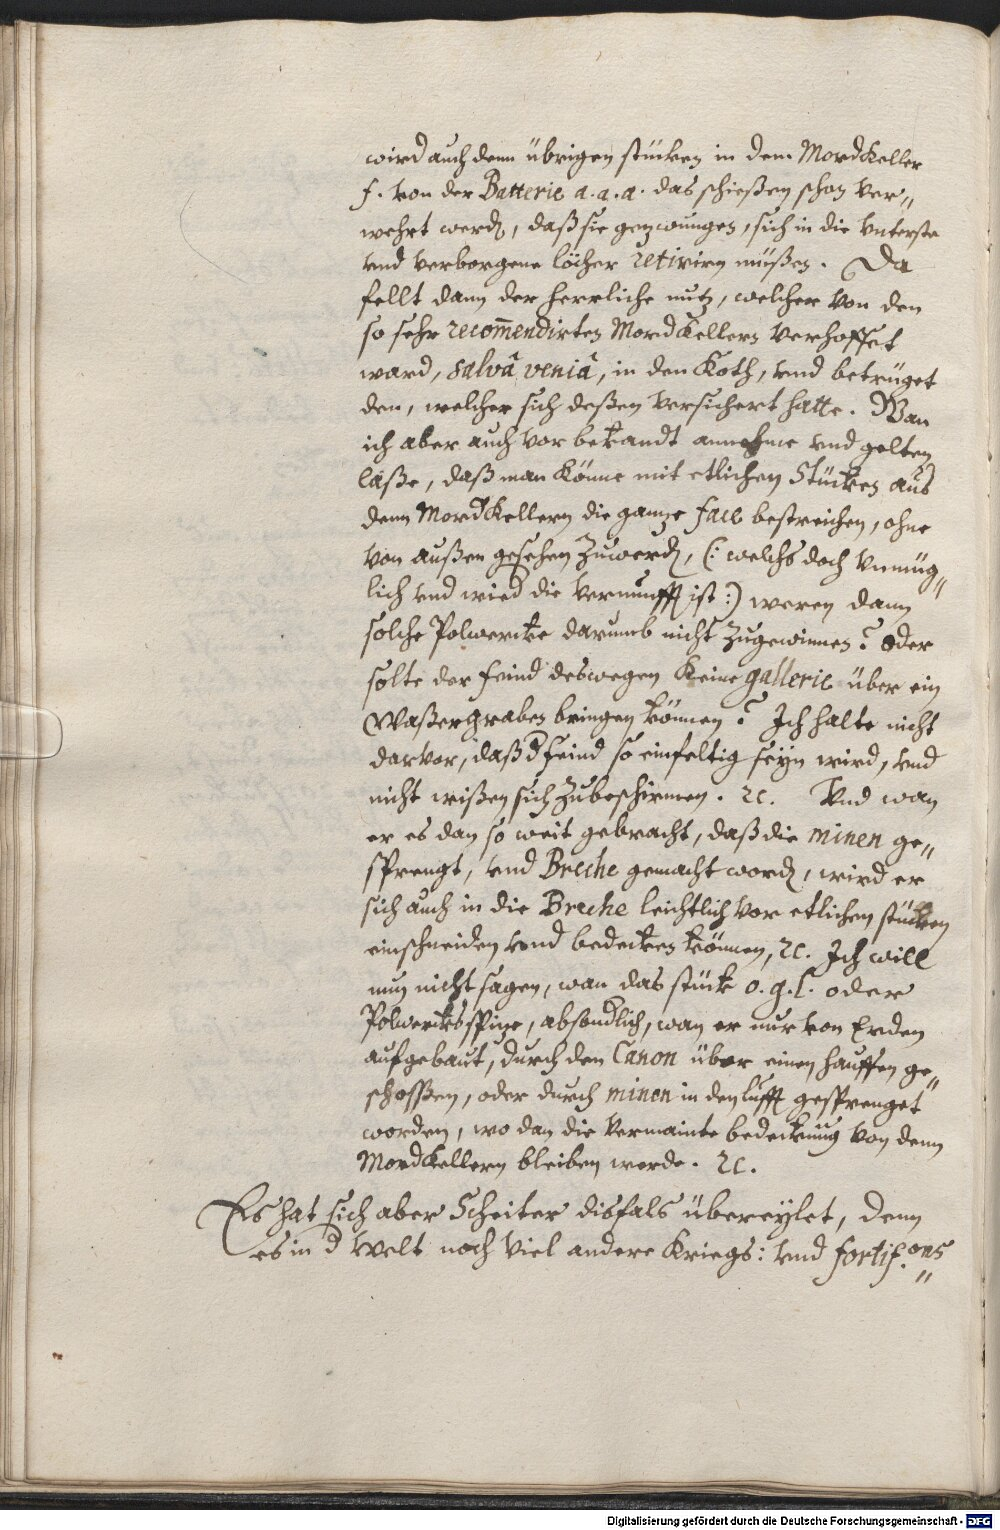 wird auch denn übrigen stücken in dem MordKeller
f. von der Batterie a. a. a. das schießen schon ver„
wehrt werdn, daß sie gezwungen, sich in die vnterste
vnd verborgene löcher retirirn müßen. Da
fellt dann der herrliche nutz, welcher von den
so sehr recom̄endirten MordKellern verhoffet
ward, salvâ veniâ, in den Koth, vnd betrüget
den, welcher sich deßen versichert hatte. Wan
ich aber auch vor bekandt annehme vnd gelten
laße, daß man Könne mit etlichen Stücken aus
denn MordKellern die ganze face bestreichen, ohne
von außen gesehen Zuwerdn, (: welchs doch vnmüg„
lich vnd wied die vernunfft ist :) weren dann
solche Polwercke darumb nicht Zugewinnen? oder
solte der feind deswegen Keine gallerie über ein
Waßergraben bringen können? Ich halte nicht
darvor, daß d feind so einfeltig seyn wird, vnd
nicht wißen sich Zubeschirmen. ꝛc. Vnd wan
er es dan so weit gebracht, daß die minen ge„
sprengt, vnd Breche gemacht wordn, wird er
sich auch in die Breche leichtlich vor etlichen stücken
einschneiden vnd bedecken können, ꝛc. Ich will
nun nicht sagen, wan das stück o. g. l. oder
Polwerksspize, absondlich, wan er nur von Erden
aufgebaut, durch den Canon über einen hauffen ge„
schoßen, oder durch minen in den lufft gesprenget
worden, wo dan die vermainte bedeckung von denn
MordKellern bleiben werde. ꝛc.
Es hat sich aber Scheiter disfals übereylet, denn
es in d Welt noch viel andere Kriegs: vnd fortif.ons„
Digitalisierung gefördert durch die Deutsche Forschungsgemeinschaft - DFG